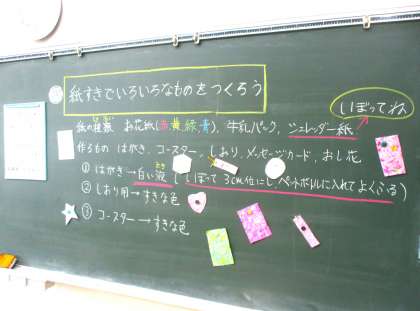 紙すきでいろいろなものをつくろう
いぼってね
紙の種類 お花紙(赤,黄,緑,青)、牛乳パック、シュレッダー紙
作るもの はがき、コースター、しおり、メッセージカード、おし花
① はがき→白い液(しぼって3cm位にし、ペットボトルに入れてよくふる)
② しおり用→すきな色
③ コースター→すきな色